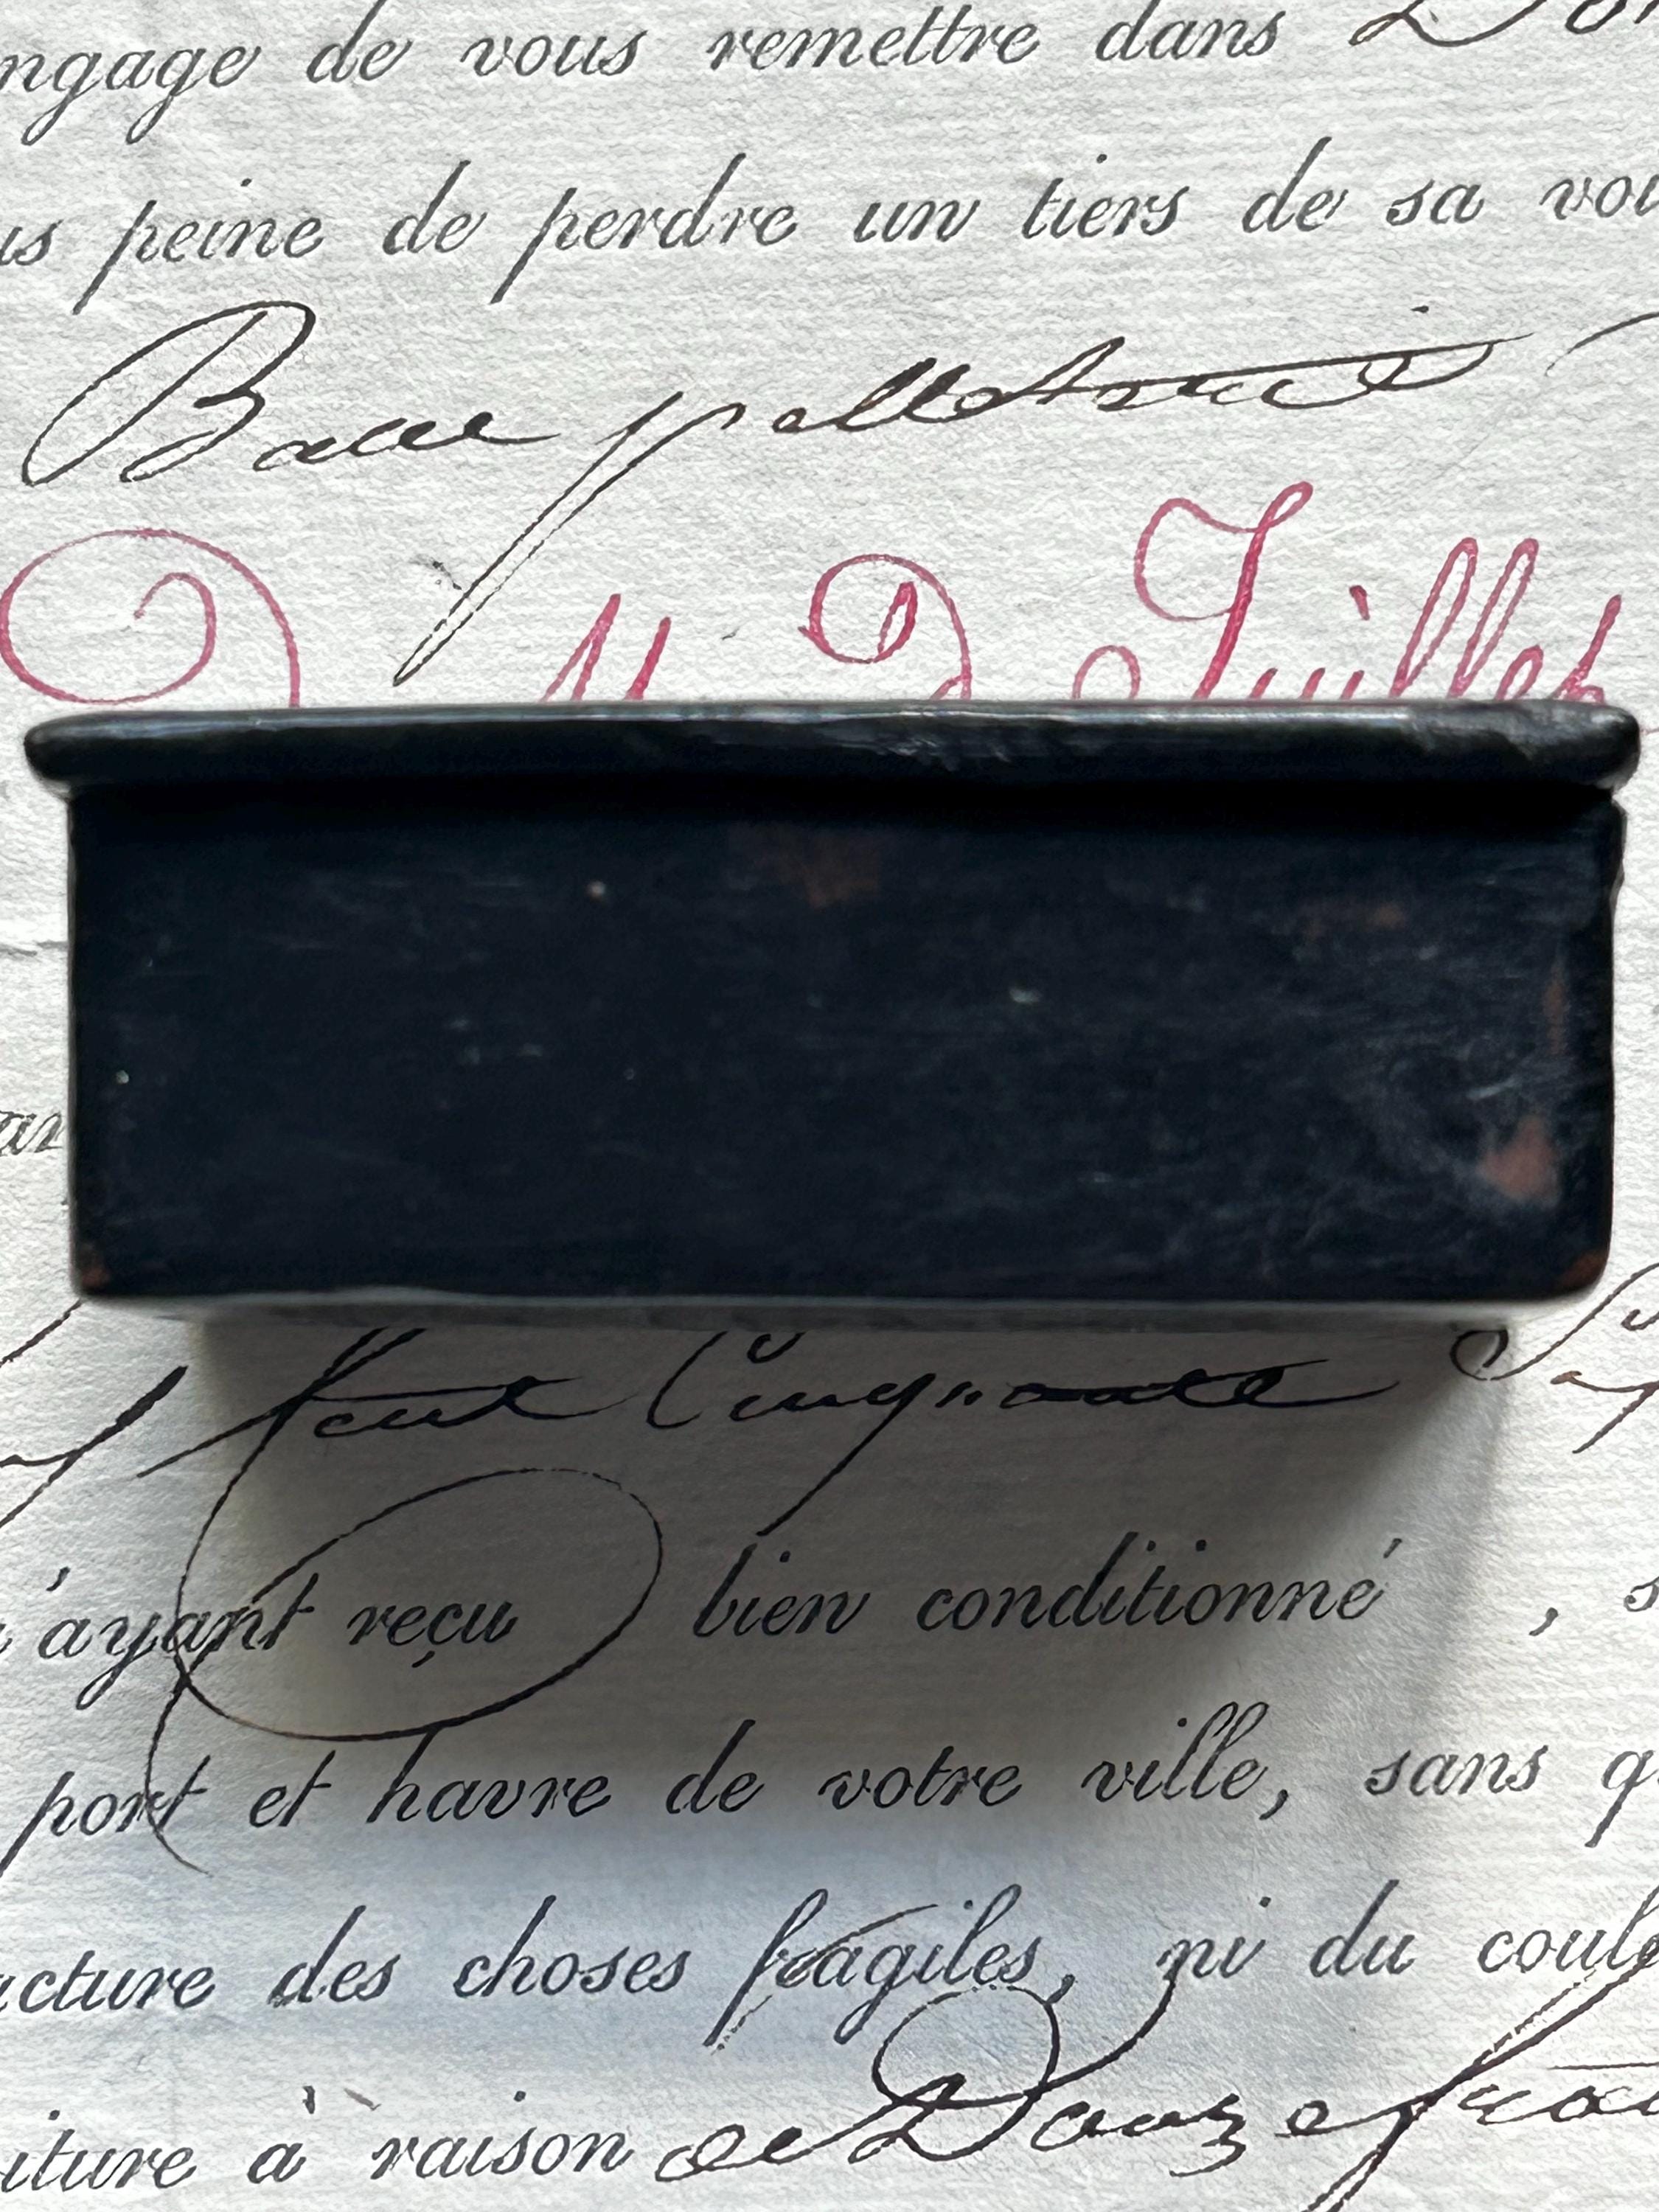 ngage de vous remettre dans
us peine de perdre un tiers de sa voi
Balle
D M D Juillet
tout Cinquante
'ayant reçu bien conditionné , s
port et havre de votre ville, sans q
acture des choses fragiles, ni du coula
iture à raison de Douze fran